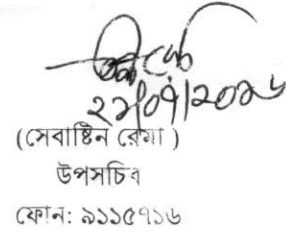 ২১/০৭/২০১৬
(সেবাষ্টিন রেমা )
উপসচিব
ফোন: ৯১১৫৭১৬